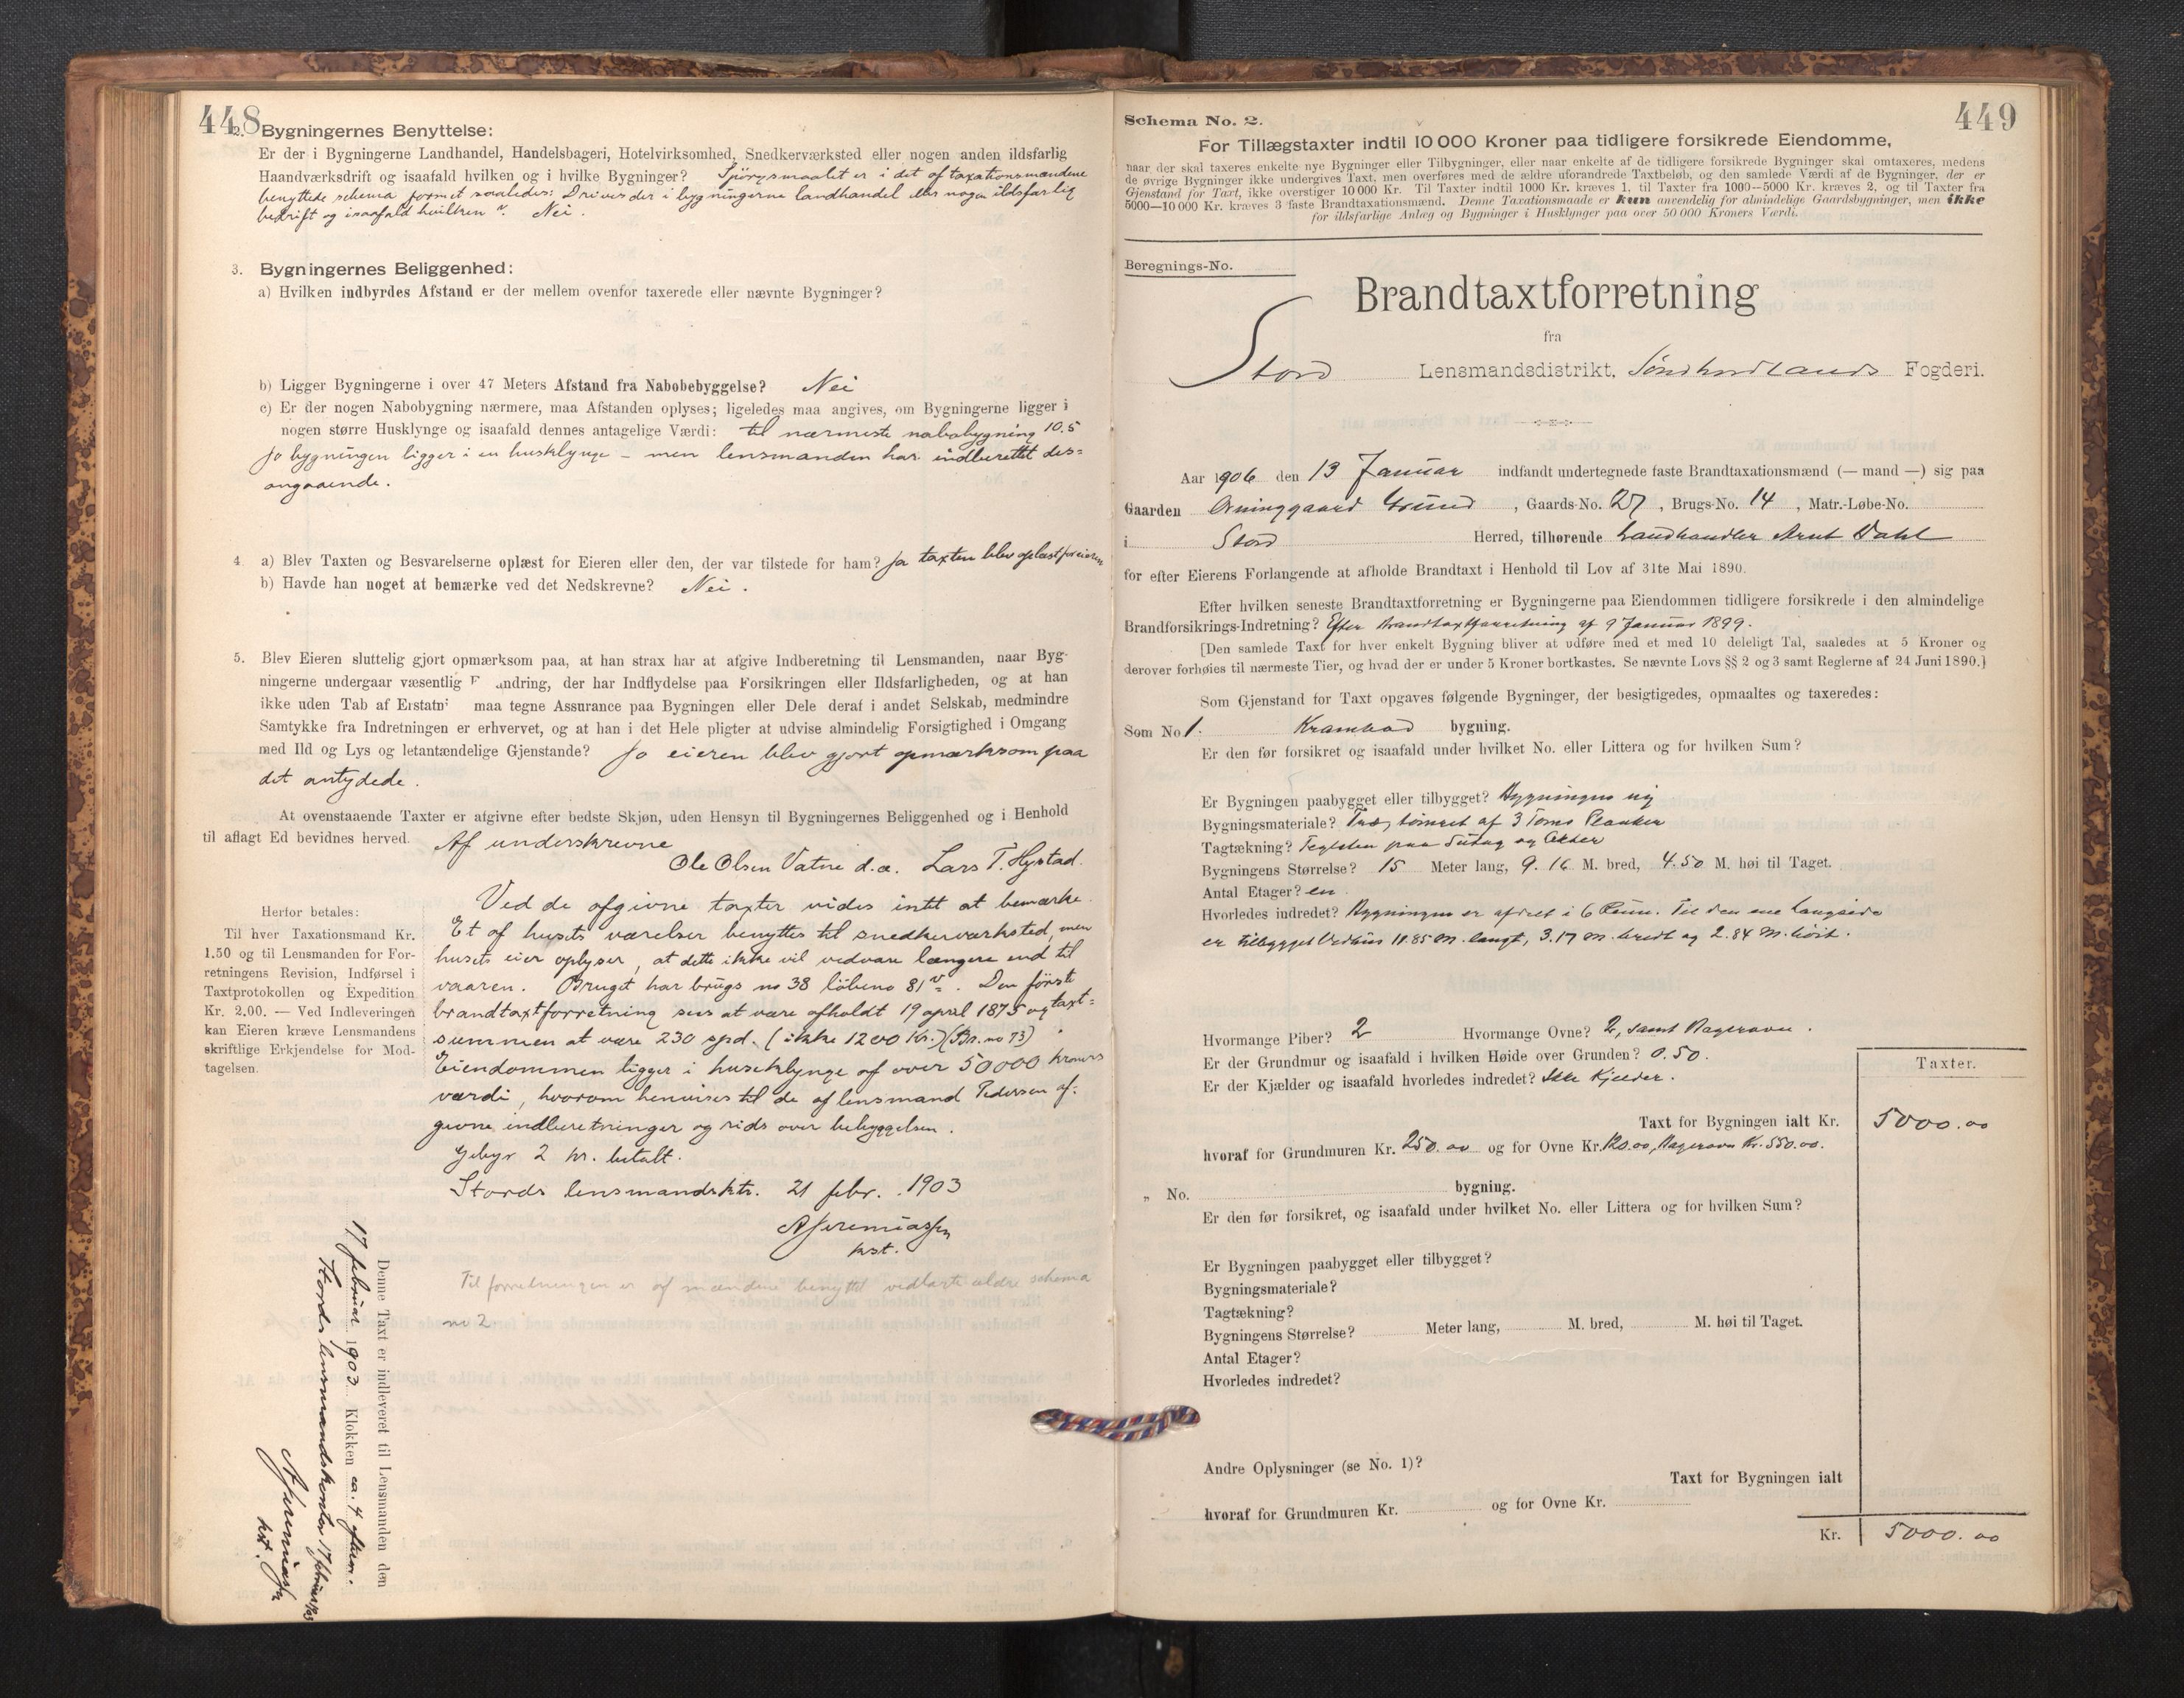 448
2. Bygningernes Benyttelse:
Er der i Bygningerne Landhandel, Handelsbageri, Hotelvirksomhed, Snedkerværksted eller nogen anden ildsfarlig
Haandværksdrift og isaafald hvilken og i hvilke Bygninger? Spörgsmaalet er i det af taxationsmændene
benyttede schema formet saaledes: Drives der i bygningerne landhandel eller nogen ildsfarlig
bedrift og isaafald hvilken? Nei.
3. Bygningernes Beliggenhed:
a) Hvilken indbyrdes Afstand er der mellem ovenfor taxerede eller nævnte Bygninger?
b) Ligger Bygningerne i over 47 Meters Afstand fra Nabobebyggelse? Nei
c) Er der nogen Nabobygning nærmere, maa Afstanden oplyses; ligeledes maa angives, om Bygningerne ligger i
nogen større Husklynge og isaafald dennes antagelige Værdi: til nærmeste nabobygning 10.5
Jo bygningen ligger i en husklynge – men lensmanden har indberettet des=
angaaende.
4 a) Blev Taxten og Besvarelserne oplæst for Eieren eller den, der var tilstede for ham? Ja taxten blev oplæst for eieren
b) Havde han noget at bemærke ved det Nedskrevne? Nei.
5. Blev Eieren sluttelig gjort opmærksom paa, at han strax har at afgive Indberetning til Lensmanden, naar Byg-
ningerne undergaar væsentlig F andring, der har Indflydelse paa Forsikringen eller Ildsfarligheden, og at han
ikke uden Tab af Erstatn maa tegne Assurance paa Bygningen eller Dele deraf i andet Selskab, medmindre
Samtykke fra Indretningen er erhvervet, og at han i det Hele pligter at udvise almindelig Forsigtighed i Omgang
med Ild og Lys og letantændelige Gjenstande? Jo eieren blev gjort opmærksom paa
det antydede.
At ovenstaaende Taxter er afgivne efter bedste Skjøn, uden Hensyn til Bygningernes Beliggenhed og i Henhold
til aflagt Ed bevidnes herved. Af underskrevne
Ole Olsen Vatne d.æ. Lars T. Hystad.
Ved de afgivne taxter vides intet at bemærke.
Et af husets værelser benyttes til snedkerværksted, men
husets eier oplyser, at dette ikke vil vedvare længere end til
vaaren. Bruget har brugs no 38 löbeno 81. Den förste
brandtaxtforretning sees at være afholdt 19 april 1875 og taxt=
summen at være 230 spd. (ikke 1200 Kr.) (Br. no 73)
Eiendommen ligger i husklynge af over 50000 kroners
værdi, hvorom henvises til de af lensmand Pedersen af-
givne indberetninger og rids over bebyggelsen.
Gebyr 2 kr. betalt.
Stords lensmandsktr. 21 febr. 1903
A Jeremiassen
kst.
Til forretningen er af mændene benyttet vedlagte ældre schema
no 2
Herfor betales:
Til hver Taxationsmand Kr.
1.50 og til Lensmanden for For-
retningens Revision, Indførsel i
Taxtprotokollen og Expedition
Kr. 2.00. — Ved Indleveringen
kan Eieren kræve Lensmandens
skriftlige Erkjendelse for Mod-
tagelsen.
Denne Taxt er indleveret til Lensmanden den
17 februar 1903 Klokken ca. 4 efterm.
Stords lensmandskontor 17 februar 1903
A Jeremiassen
kst.
449
Schema No. 2.
For Tillægstaxter indtil 10 000 Kroner paa tidligere forsikrede Eiendomme,
naar der skal taxeres enkelte nye Bygninger eller Tilbygninger, eller naar enkelte af de tidligere forsikrede Bygninger skal omtaxeres, medens
de øvrige Bygninger ikke undergives Taxt, men overføres med de ældre uforandrede Taxtbeløb, og den samlede Værdi af de Bygninger, der er
Gjenstand for Taxt, ikke overstiger 10 000 Kr. Til Taxter indtil 1000 Kr. kræves 1, til Taxter fra 1000—5000 Kr. kræves 2, og til Taxter fra
5000—10 000 Kr. kræves 3 faste Brandtaxationsmænd. Denne Taxationsmaade er kun anvendelig for almindelige Gaardsbygninger, men ikke
for ildsfarlige Anlæg og Bygninger i Husklynger paa over 50 000 Kroners Værdi.
Beregnings-No.
Brandtaxtforretning
fra
Stord Lensmandsdistrikt, Söndhordlands Fogderi.
Aar 1906 den 13 Januar indfandt undertegnede faste Brandtaxationsmænd (— mand —) sig paa
Gaarden Orninggaard Grund, Gaards-No. 27, Brugs-No. 14, Matr.-Løbe-No.
i Stord Herred, tilhørende Landhandler Arnt Dahl
for efter Eierens Forlangende at afholde Brandtaxt i Henhold til Lov af 31te Mai 1890.
Efter hvilken seneste Brandtaxtforretning er Bygningerne paa Eiendommen tidligere forsikrede i den almindelige
Brandforsikrings-Indretning? Efter Brandtaxtforretning af 9 Januar 1899.
[Den samlede Taxt for hver enkelt Bygning bliver at udføre med et med 10 deleligt Tal, saaledes at 5 Kroner og
derover forhøies til nærmeste Tier, og hvad der er under 5 Kroner bortkastes. Se nævnte Lovs §§ 2 og 3 samt Reglerne af 24 Juni 1890.]
Som Gjenstand for Taxt opgaves følgende Bygninger, der besigtigedes, opmaaltes og taxeredes:
Som No 1. Krambod bygning.
Er den før forsikret og isaafald under hvilket No. eller Littera og for hvilken Sum?
Er Bygningen paabygget eller tilbygget? Bygningen ny
Bygningsmateriale? Træ, tömret af 3 Toms Planker
Tagtækning? Teglsten paa Sutag og Lekter
Bygningens Størrelse? 15 Meter lang, 9.16 M. bred, 4.50 M. høi til Taget.
Antal Etager? en
Hvorledes indredet? Bygningen er afdelt i 6 Rum. Til den ene Langside
er tilbygget Vedhus 11.85 M. langt, 3.17 M. bredt og 2.84 M. höit.
Hvormange Piber? 2 Hvormange Ovne? 2, samt Bagerovn.
Er der Grundmur og isaafald i hvilken Høide over Grunden? 0.50.
Er der Kjælder og isaafald hvorledes indredet? Ikke Kjelder.
Taxter.
Taxt for Bygningen ialt Kr. 5000.00
hvoraf for Grundmuren Kr. 250.00 og for Ovne Kr. 120.00, Bagerovn Kr. 550.00.
„ No. bygning.
Er den før forsikret, og isaafald under hvilket No. eller Littera og for hvilken Sum?
Er Bygningen paabygget eller tilbygget?
Bygningsmateriale?
Tagtækning?
Bygningens Størrelse? Meter lang, M. bred, M. høi til Taget.
Antal Etager?
Hvorledes indredet?
Andre Oplysninger (se No. 1)?
Taxt for Bygningen ialt
hvoraf for Grundmuren Kr. og for Ovne Kr.
Kr. 5000.00